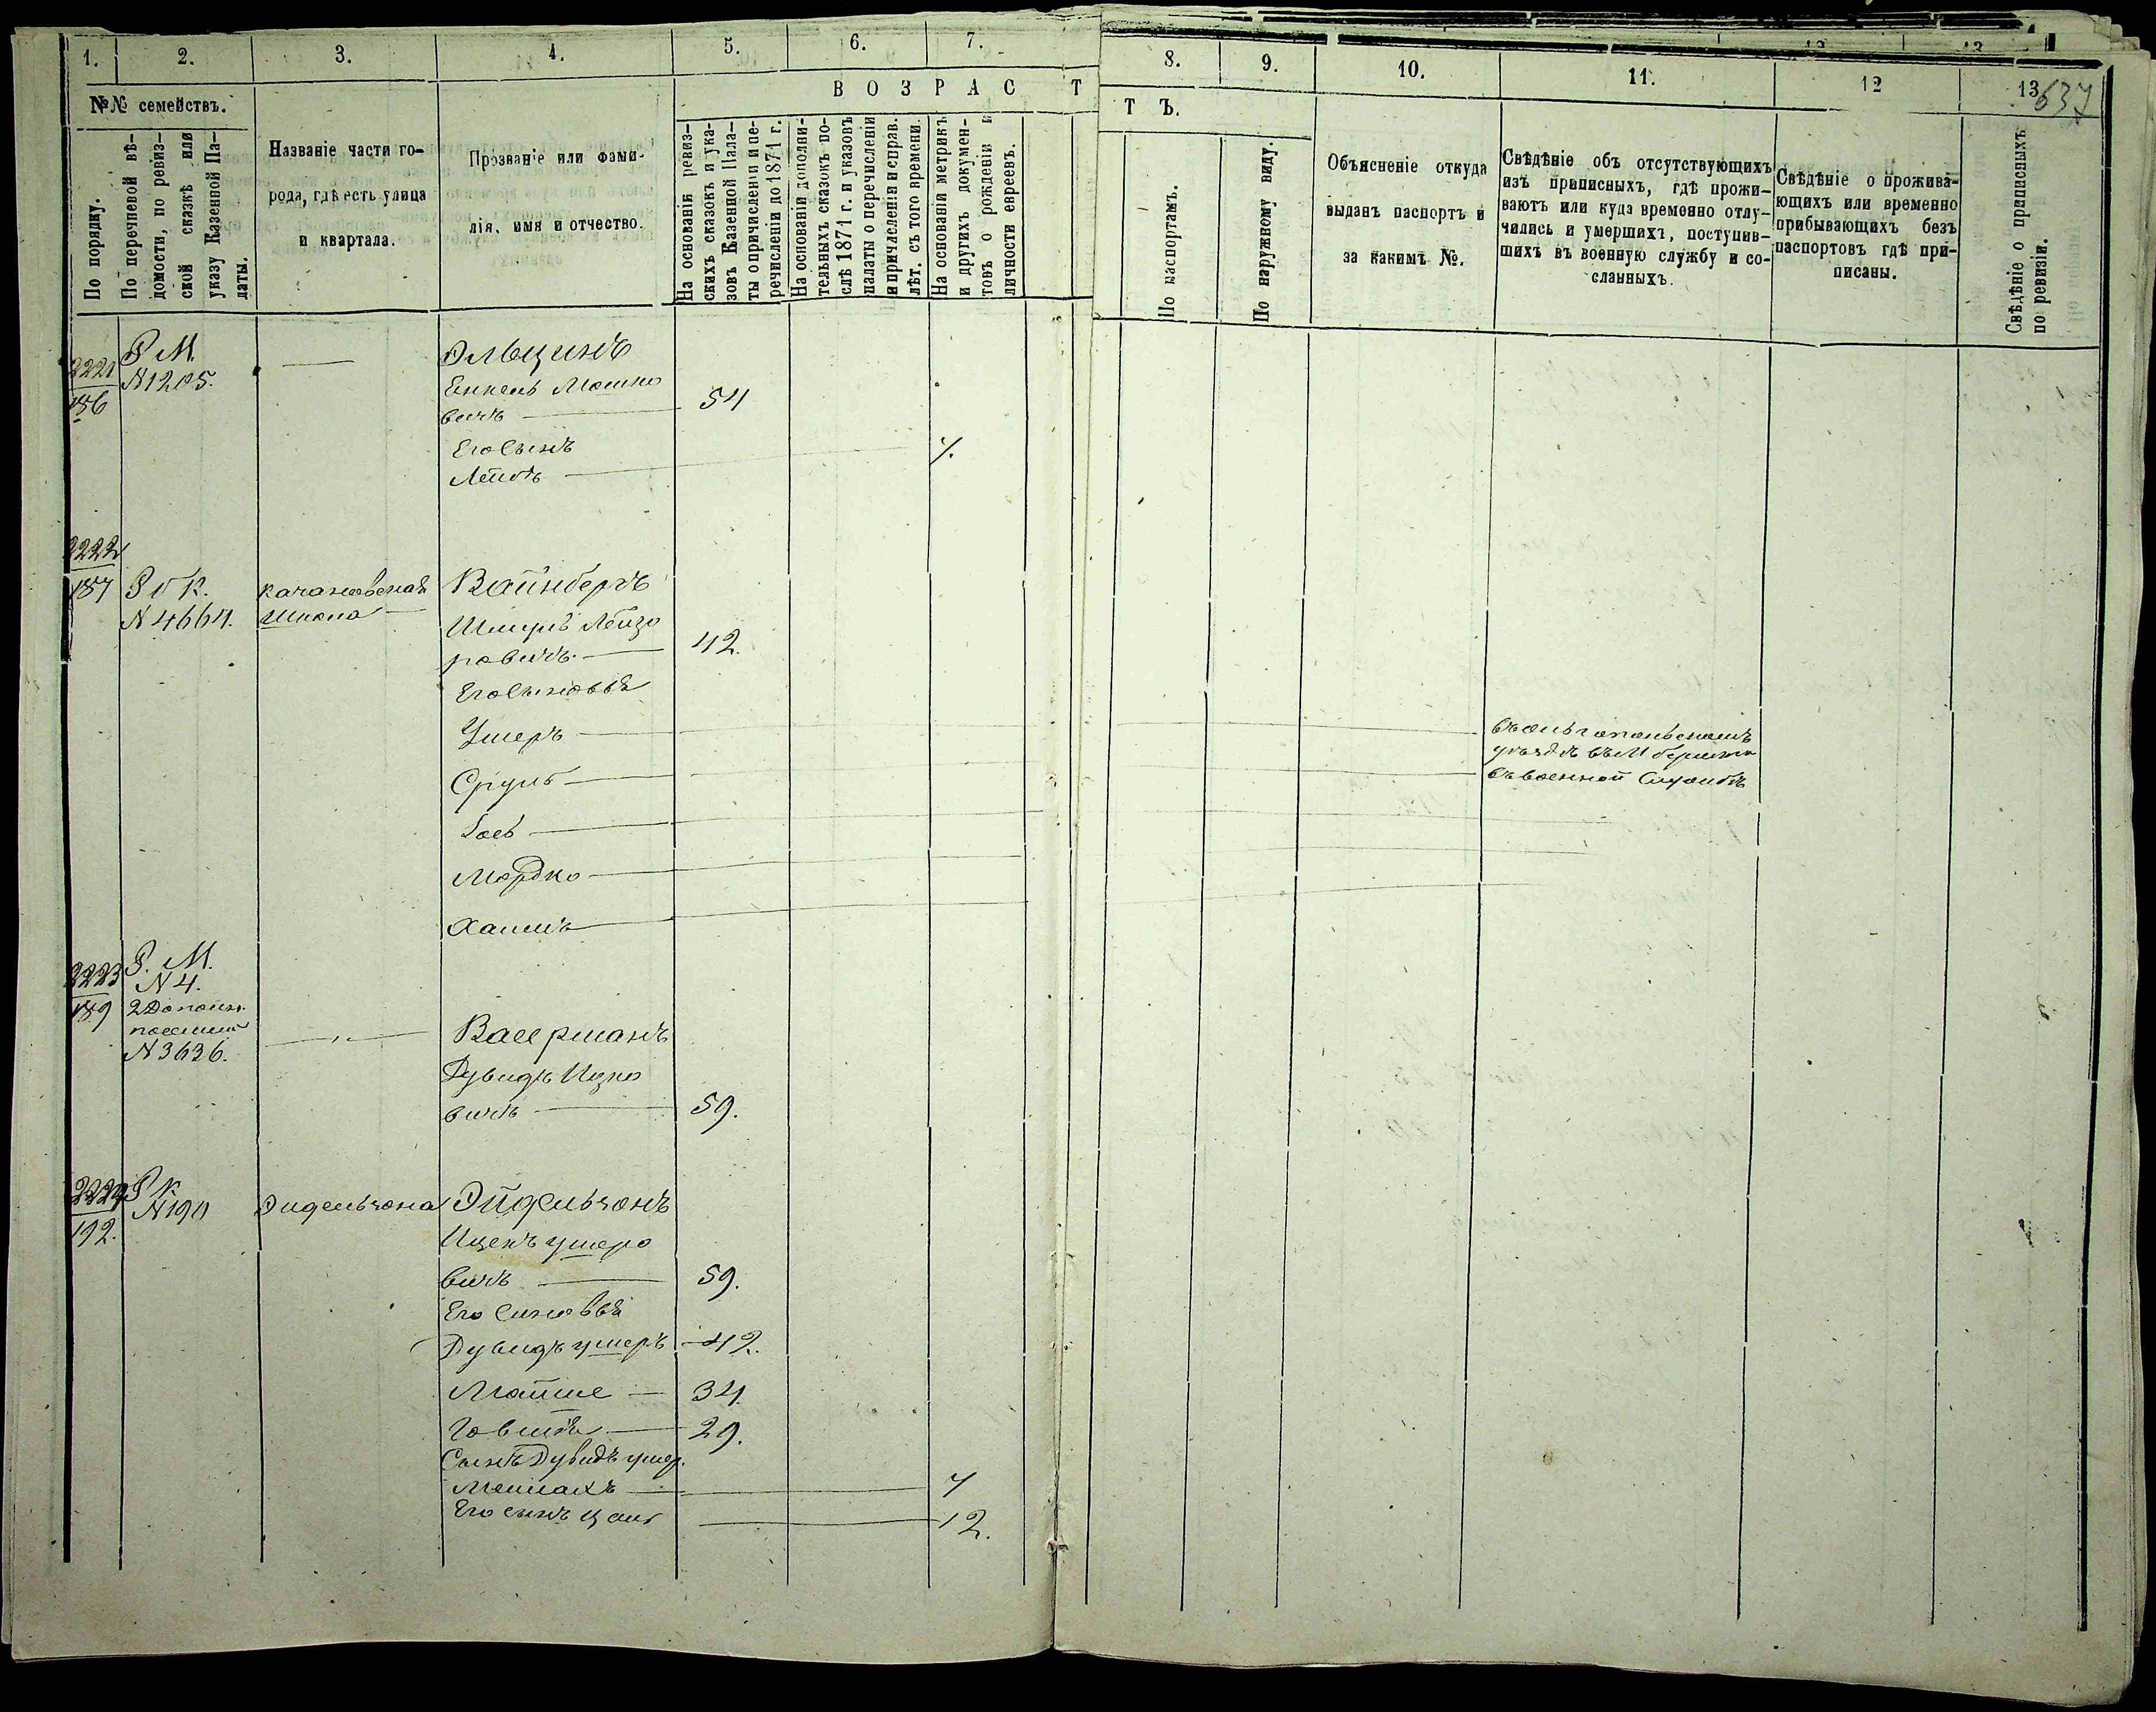 1. 2. 3. 4. 5. 6. 7. 8. 9. 10. 11. 12 13
637
№№ семействъ.
По порядку.
По перечневой вѣ-
домости, по ревиз-
ской сказкѣ или
указу Казенной Па-
латы.
Названіе части го-
рода, гдѣ есть улица
и квартала.
Прозваніе или фами-
лія, имя и отчество.
ВОЗРАСТ
ТЪ.
На основаніи ревиз-
скихъ сказокъ и ука-
зовъ Казенной Пала-
ты о причисленіи и пе-
речисленіи до 1871 г.
На основаніи дополни-
тельныхъ сказокъ по-
слѣ 1871 г. и указовъ
палаты о перечисленіи
и причисленіи и справ.
лѣт. съ того времени.
На основаніи метрикъ
и другихъ докумен-
товъ о рожденіи и
личности евреевъ.
По паспортамъ.
По наружному виду.
Объясненіе откуда
выданъ паспортъ и
за какимъ №.
Свѣдѣніе объ отсутствующихъ
изъ приписныхъ, гдѣ прожи-
ваютъ или куда временно отлу-
чились и умершихъ, поступив-
шихъ въ военную службу и со-
сланныхъ.
Свѣдѣніе о прожива-
ющихъ или временно
прибывающихъ безъ
паспортовъ гдѣ при-
писаны.
Свѣдѣніе о приписныхъ
по ревизіи.
2221
186
Р М.
N 1205.
Эльцинъ
Енкель Мошко
вичъ 54
Его сынъ
Лейбъ 7.
2222
187
N 4664.
Качановская
Школа
Вайнбергъ
Шмуль Лейзо
ровичъ 42.
Его сыновья
Ушеръ
въ Ольгопольскомъ
уѣздѣ въ М
Сруль
въ военной службѣ
Мордко
Хаимъ
2223
189
Р. М.
N 4.
2 Дополн.
N 3636.
Васерманъ
Дувидъ Ицко
вичъ 59.
2224
192.
Р К
N 190
Эидельзона
Эйдельзонъ
Ицекъ Ушеро
вичъ 59.
Его сыновья
Дувидъ умеръ 42.
Мойше 34.
29.
Сынъ Дувидъ умер.
7
Его сынъ
12.